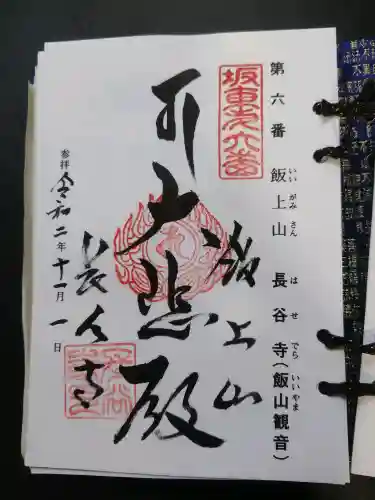 第六番 飯上山 長谷寺(飯山観音)
いいがみさん はせでら いいやま
坂東第六番
飯上山
大悲殿
長谷寺
参拝 令和二年十一月一日